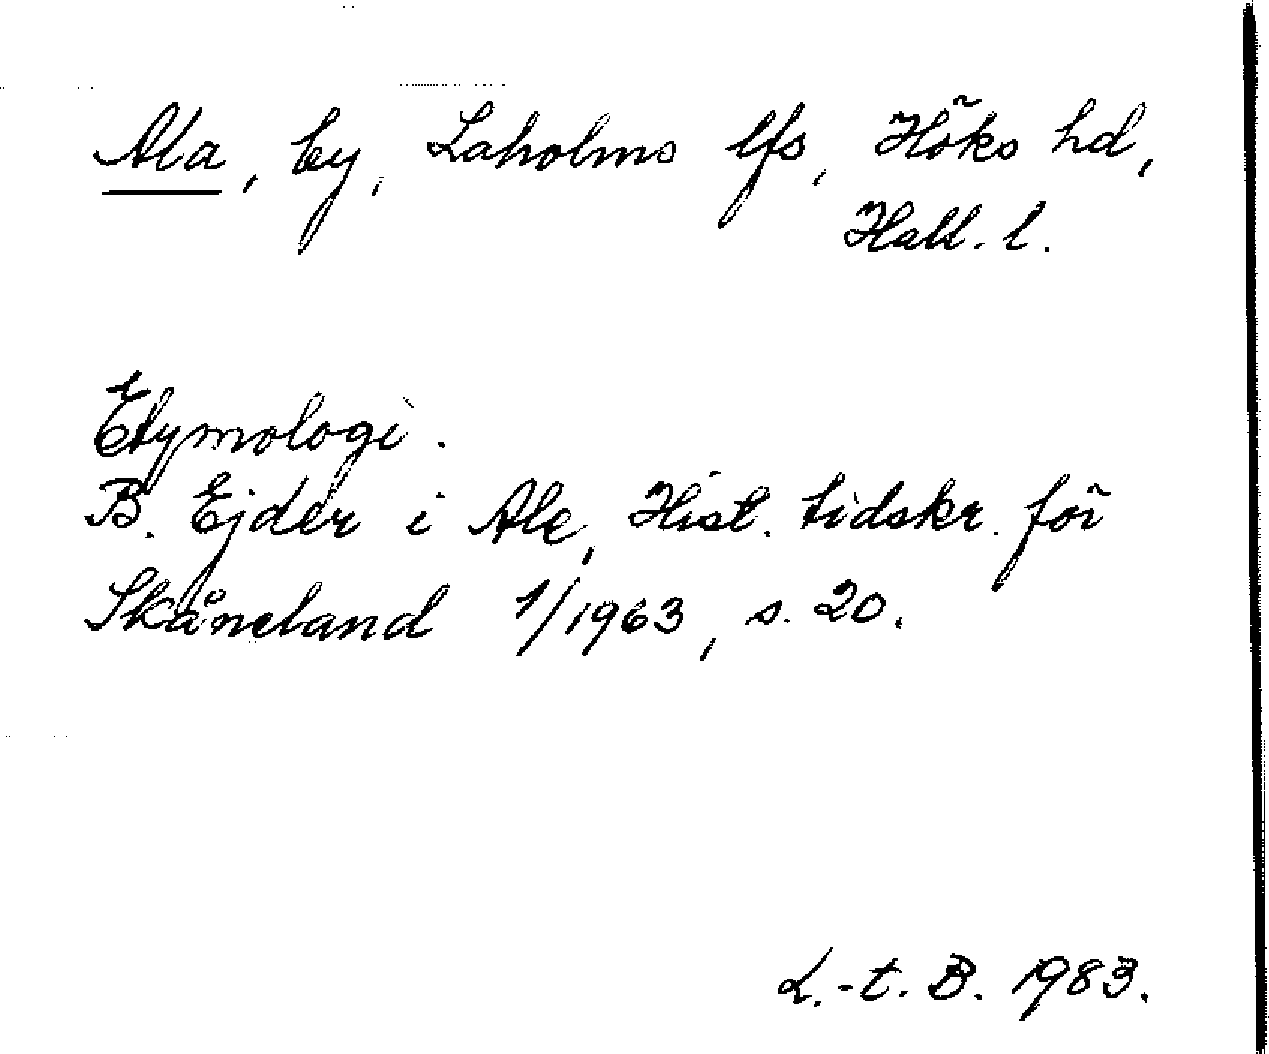 Ala, by, Laholms lfs, Höks hd,
Hall. l.
Etymologi.
B. Ejder i Ale, Hist. tidskr. för
Skåneland 1/1963, s. 20.
L.-t. B. 1983.